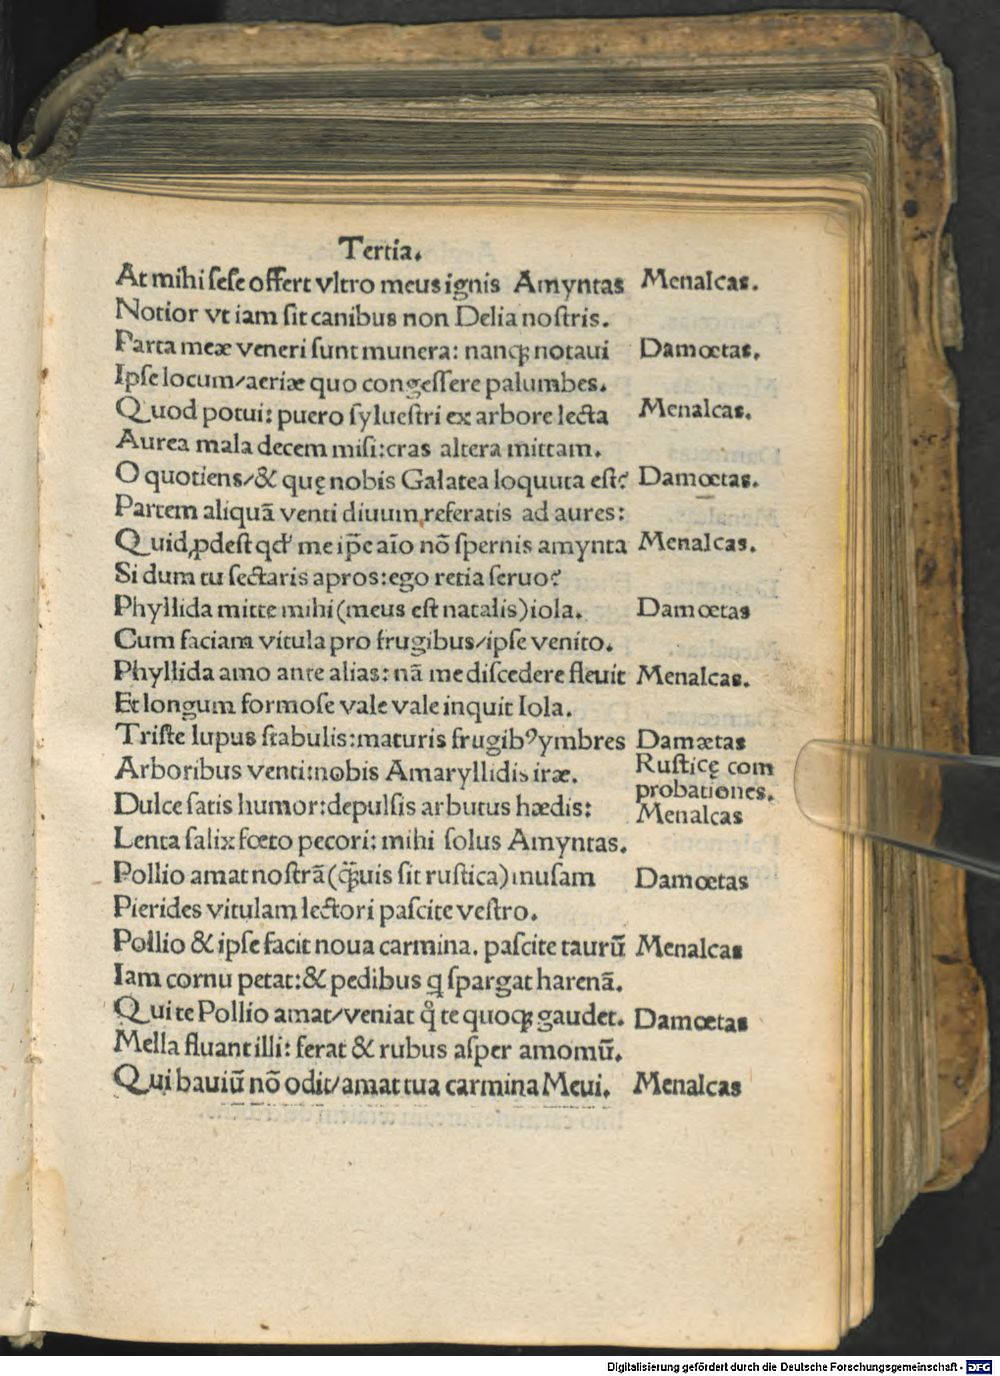 Tertia.
At mihi sese offert vltro meus ignis Amyntas Menalcas.
Notior vt iam sit canibus non Delia nostris.
Parta meæ veneri sunt munera: nanqꝫ notaui Damœtas.
Ipse locum/aeriæ quo congessere palumbes.
Quod potui: puero syluestri ex arbore lecta Menalcas.
Aurea mala decem misi:cras altera mittam.
O quotiens/& quę nobis Galatea loquuta est? Damœtas.
Partem aliquā venti diuum referatis ad aures:
Quid ꝓdest qđ me ip̄e aīo nō spernis amynta Menalcas.
Si dum tu sectaris apros:ego retia seruo?
Phyllida mitte mihi(meus est natalis)iola. Damœtas
Cum faciam vitula pro frugibus/ipse venito.
Phyllida amo ante alias: nā me discedere fleuit Menalcas.
Et longum formose vale vale inquit Iola.
Triste lupus stabulis:maturis frugibꝰ ymbres Damætas
Arboribus venti:nobis Amaryllidis iræ. Rusticę com
probationes.
Dulce satis humor:depulsis arbutus hædis: Menalcas
Lenta salix fœto pecori: mihi solus Amyntas.
Pollio amat nostrā(q̄ꝫuis sit rustica)musam Damœtas
Pierides vitulam lectori pascite vestro.
Pollio & ipse facit noua carmina. pascite taurū Menalcas
Iam cornu petat:& pedibus q spargat harenā.
Qui te Pollio amat/veniat qͦ te quoqꝫ gaudet. Damœtas
Mella fluant illi: ferat & rubus asper amomū.
Qui bauiū nō odit/amat tua carmina Meui. Menalcas
Digitalisierung gefördert durch die Deutsche Forschungsgemeinschaft - DFG